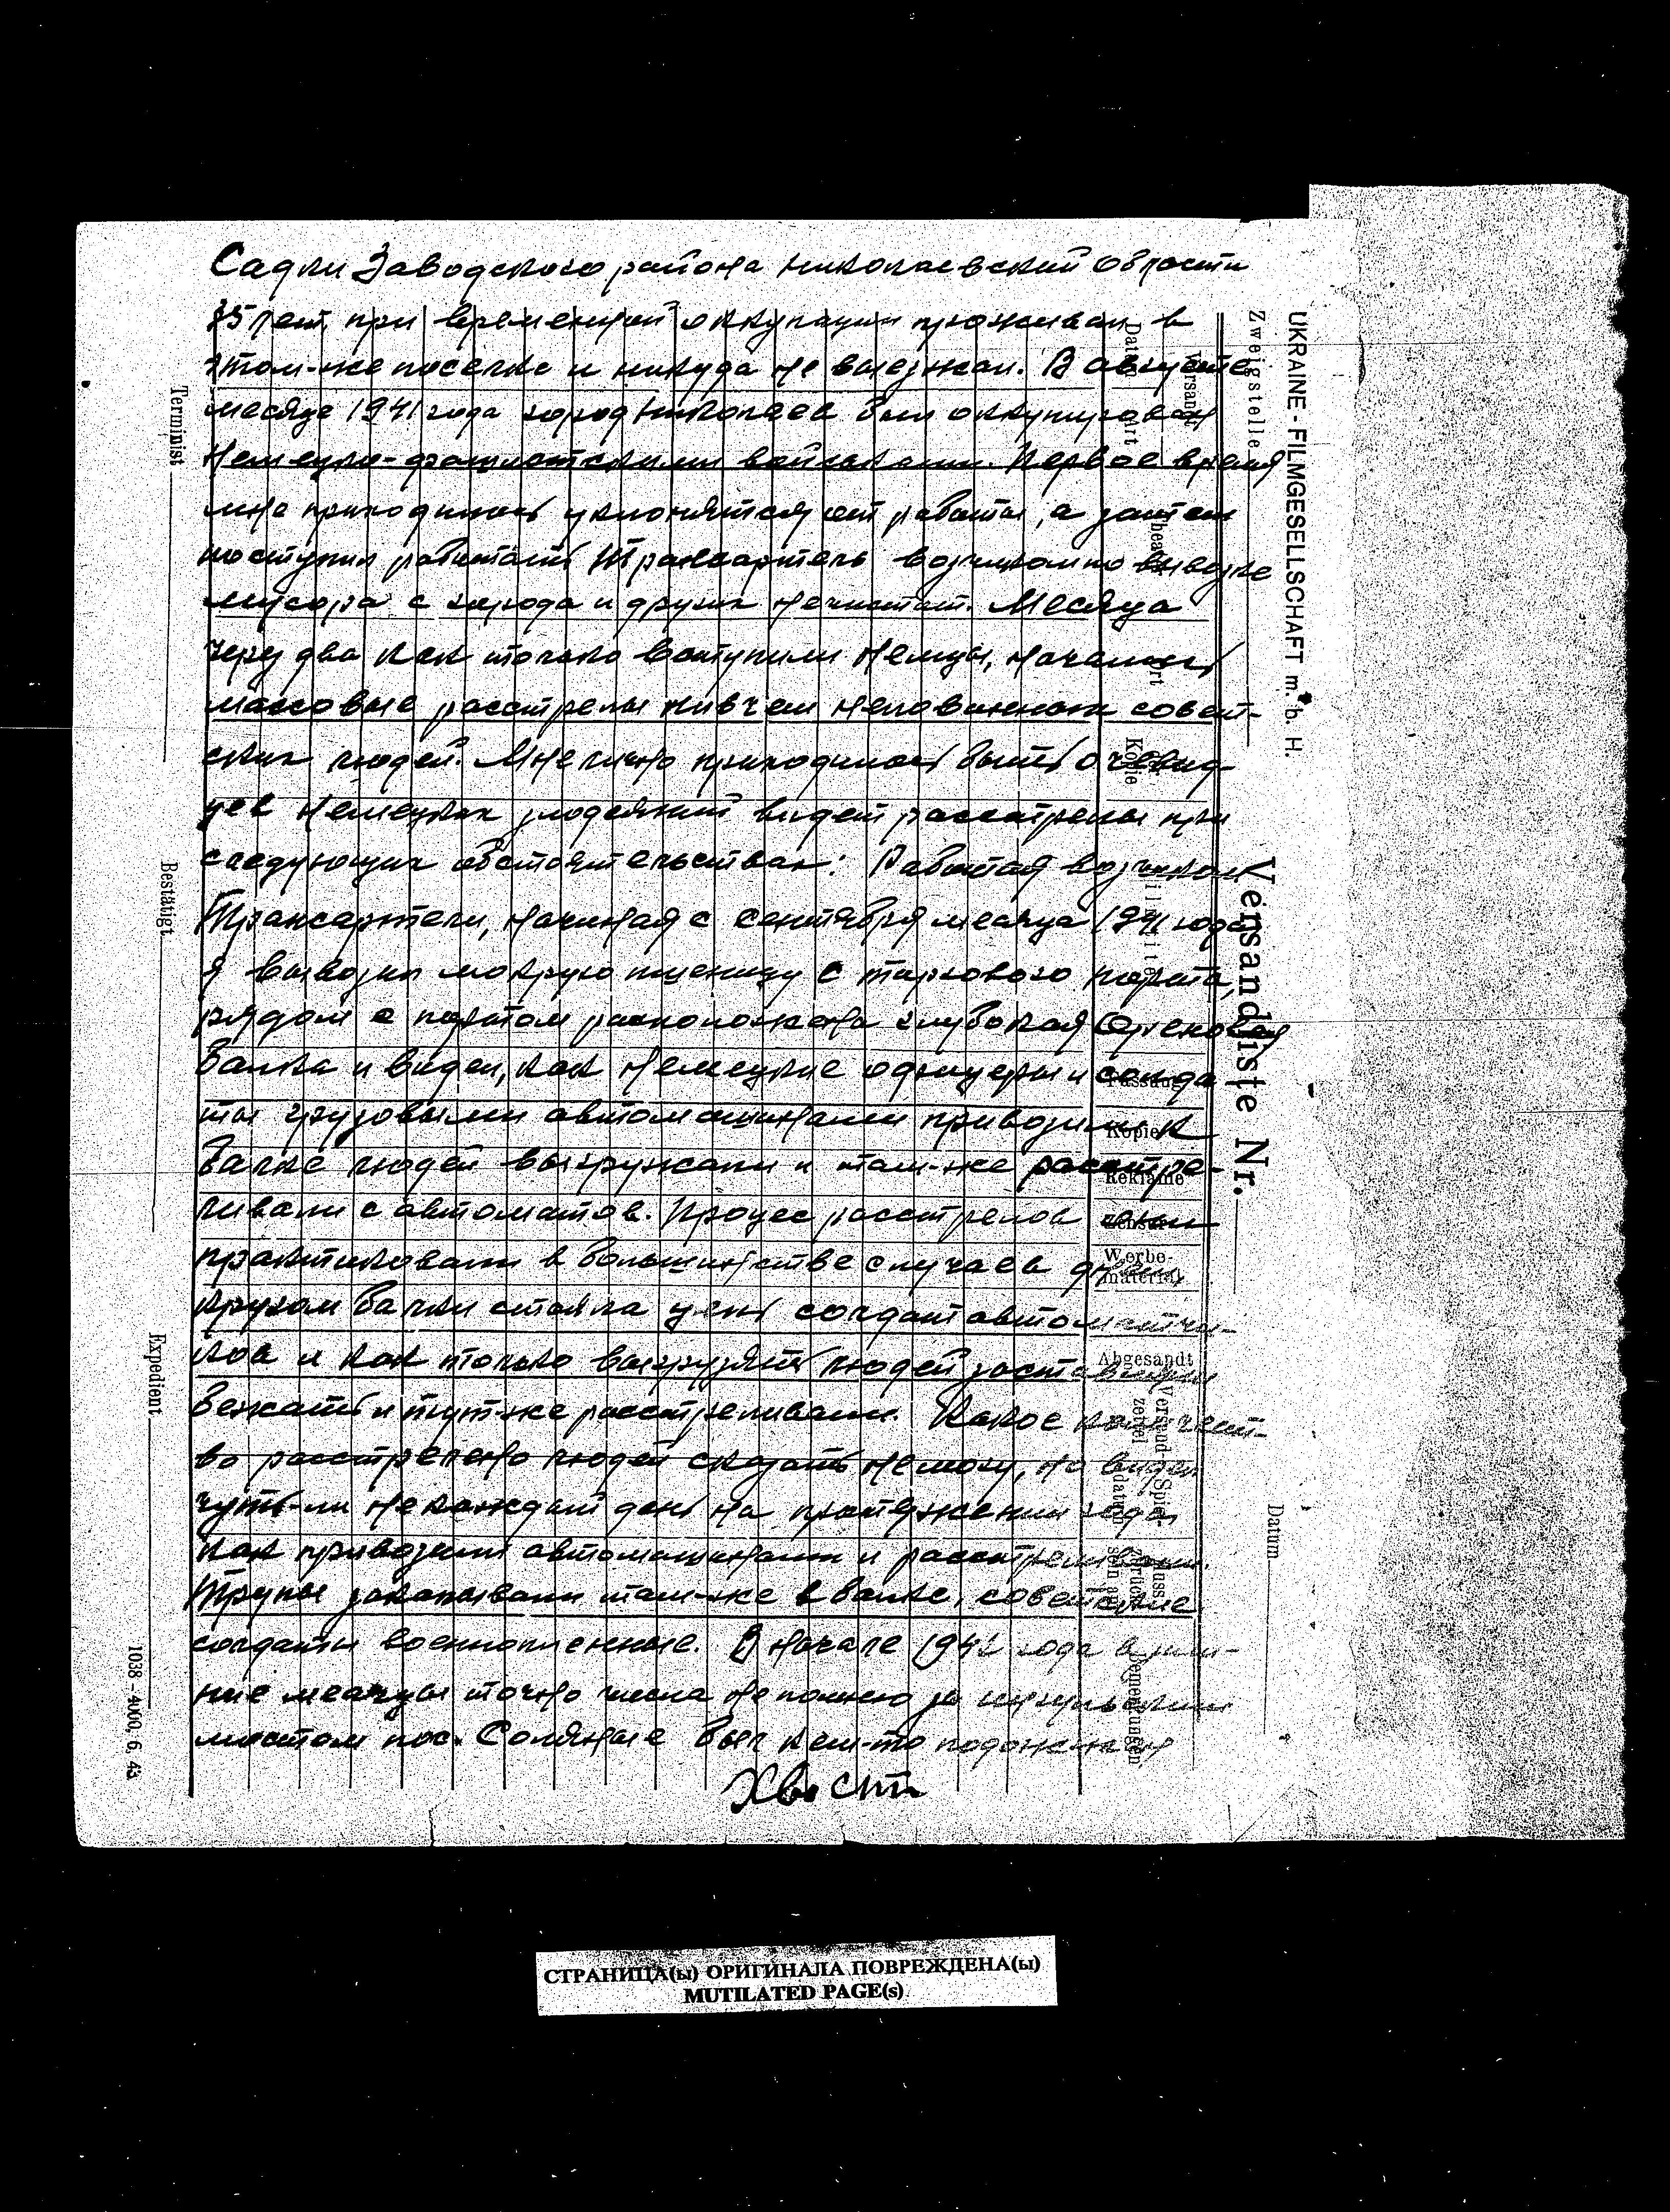 Садки Заводского района Николаевский области
35 лет, при временной оккупации проживал в
этом-же поселке и никуда не выезжал. В августе
месяце 1941 года город Николаев был оккупирован
Немецко-фашистскими войсками. Первое время
мне приходилось уклонятся от работы, а затем
поступил работать Трансартель возчиком по вывозке
мусора с города и других нечистот. Месяца
через два как только вступили Немцы, начались
массовые расстрелы нивчем неповинных совет-
ских людей. Мне лично приходилось быть очевид-
цев Немецких злодеяний видел расстрелы при
следующих обстоятельствах: Работая возчиком
Трансартели, начиная с сентября месяца 1941 года
я вывозил мокрую пшеницу с торгового порта,
рядом с портом расположена глубокая
балка и видел, как Немецкие офицеры и солда
ты грузовыми автомашинами привозили к
балке людей выгружали и там-же расстре-
ливали с автоматов. Процес расстрелов
практиковали в большинстве случаев днем
кругом балки стояла цепь солдат автоматчи-
ков и как только выгрузять людей заставляли
бежать и тут-же расстреливали. Какое количест-
во расстрелено людей сказать немогу, но видел
чуть-ли не каждый день на протяжении года
как привозили автомашинами и расстреливали.
Трупы закапывали там-же в балке, советские
солдаты военнопленные. В начале 1942 года в зим-
ние месяцы точно числа не помню за
мостом пос. Соляные был кем-то подожжен
Хвост
UKRAINE - FILMGESELLSCHAFT m. b. H.
Zweigstelle
Versandliste Nr.
Datum
Versandt
Datum Art
Theater
Ort
Kopie
Fassung
Kopie
Reklame
Zensur
Werbe-
material
Abgesandt
Versand-
zettel
Spiel-
datum
Bemerkungen
Terminist
Bestätigt
Expedient
1038 - 4000, 6. 43
СТРАНИЦА(ы) ОРИГИНАЛА ПОВРЕЖДЕНА(ы)
MUTILATED PAGE(s)